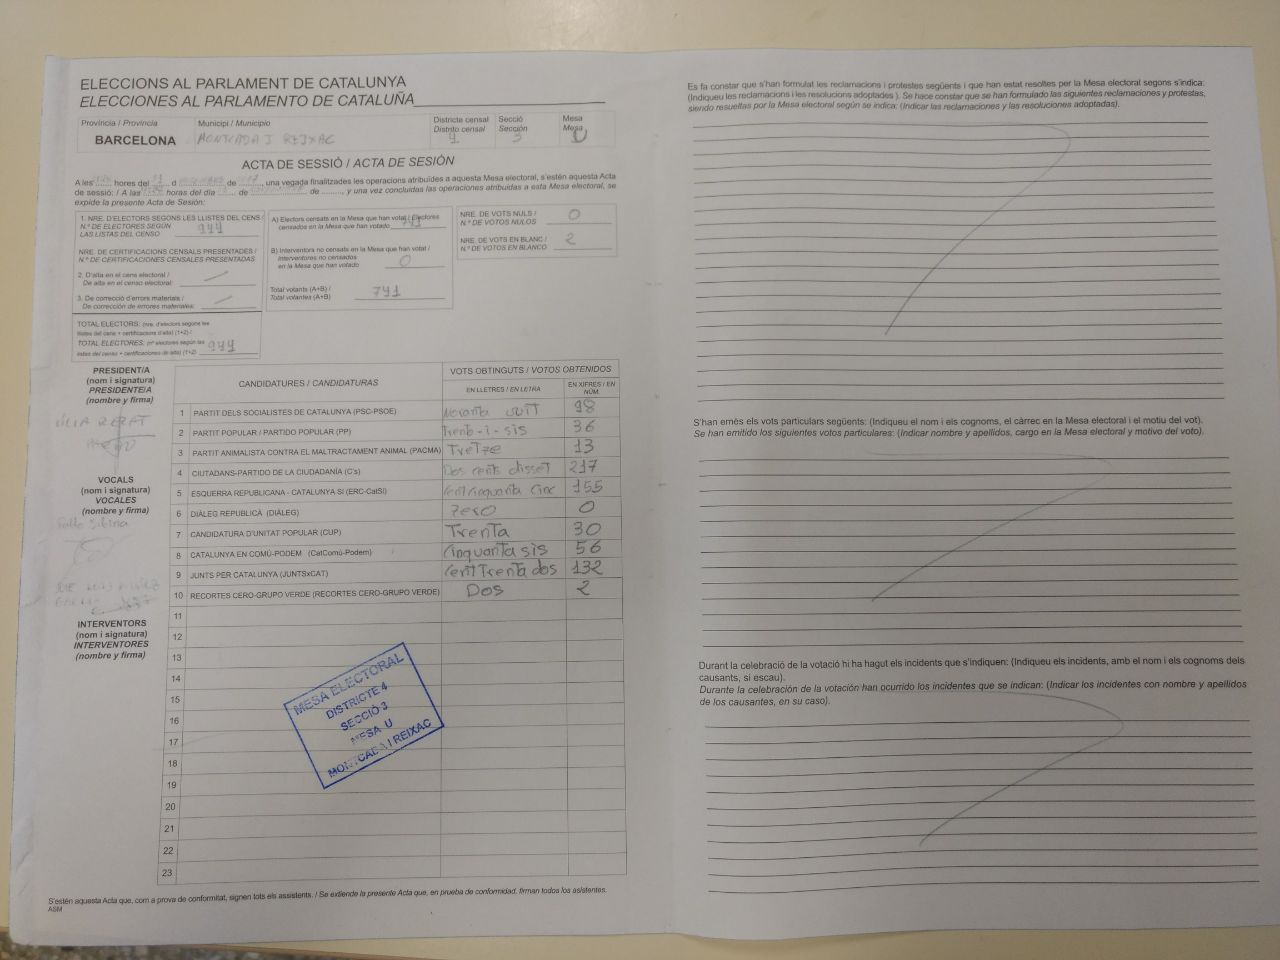 ELECCIONS AL PARLAMENT DE CATALUNYA
ELECCIONES AL PARLAMENTO DE CATALUÑA
Província / Provincia
BARCELONA
Municipi / Municipio
MONTCADA I REIXAC
Districte censal
Distrito censal
4
Secció
Sección
3
Mesa
Mesa
U
ACTA DE SESSIÓ / ACTA DE SESIÓN
A les hores del d de , una vegada finalitzades les operacions atribuïdes a aquesta Mesa electoral, s'estén aquesta Acta
de sessió: / A las horas del día de de , y una vez concluidas las operaciones atribuidas a esta Mesa electoral, se
expide la presente Acta de Sesión:
1. NRE. D'ELECTORS SEGONS LES LLISTES DEL CENS /
N.º DE ELECTORES SEGÚN
LAS LISTAS DEL CENSO 944
NRE. DE CERTIFICACIONS CENSALS PRESENTADES /
N.º DE CERTIFICACIONES CENSALES PRESENTADAS
2. D'alta en el cens electoral /
De alta en el censo electoral:
3. De correcció d'errors materials /
De corrección de errores materiales:
TOTAL ELECTORS: (nre. d'electors segons les
llistes del cens + certificacions d'alta) (1+2) /
TOTAL ELECTORES: (nº electores según las
listas del censo + certificaciones de alta) (1+2) 944
A) Electors censats en la Mesa que han votat / Electores
censados en la Mesa que han votado 741
B) Interventors no censats en la Mesa que han votat /
Interventores no censados
en la Mesa que han votado 0
Total votants (A+B) /
Total votantes (A+B) 741
NRE. DE VOTS NULS /
N.º DE VOTOS NULOS 0
NRE. DE VOTS EN BLANC /
N.º DE VOTOS EN BLANCO 2
PRESIDENT/A
(nom i signatura)
PRESIDENTE/A
(nombre y firma)
VOCALS
(nom i signatura)
VOCALES
(nombre y firma)
INTERVENTORS
(nom i signatura)
INTERVENTORES
(nombre y firma)
CANDIDATURES / CANDIDATURAS
VOTS OBTINGUTS / VOTOS OBTENIDOS
EN LLETRES / EN LETRA
EN XIFRES / EN NÚM.
1 PARTIT DELS SOCIALISTES DE CATALUNYA (PSC-PSOE) Noranta vuit 98
2 PARTIT POPULAR / PARTIDO POPULAR (PP) Trenta-i-sis 36
3 PARTIT ANIMALISTA CONTRA EL MALTRACTAMENT ANIMAL (PACMA) Tretze 13
4 CIUTADANS-PARTIDO DE LA CIUDADANÍA (C's) Dos cents disset 217
5 ESQUERRA REPUBLICANA - CATALUNYA SÍ (ERC-CatSí) Cent cinquanta cinc 155
6 DIÀLEG REPUBLICÀ (DIÀLEG) Zero 0
7 CANDIDATURA D'UNITAT POPULAR (CUP) Trenta 30
8 CATALUNYA EN COMÚ-PODEM (CatComú-Podem) Cinquanta sis 56
9 JUNTS PER CATALUNYA (JUNTSxCAT) Cent Trenta dos 132
10 RECORTES CERO-GRUPO VERDE (RECORTES CERO-GRUPO VERDE) Dos 2
11
12
13
14
15
16
17
18
19
20
21
22
23
MESA ELECTORAL
DISTRICTE 4
SECCIÓ 3
MESA U
MONTCADA I REIXAC
S'estén aquesta Acta que, com a prova de conformitat, signen tots els assistents. / Se extiende la presente Acta que, en prueba de conformidad, firman todos los asistentes.
ASM
Es fa constar que s'han formulat les reclamacions i protestes següents i que han estat resoltes per la Mesa electoral segons s'indica:
(Indiqueu les reclamacions i les resolucions adoptades ). Se hace constar que se han formulado las siguientes reclamaciones y protestas,
siendo resueltas por la Mesa electoral según se indica: (Indicar las reclamaciones y las resoluciones adoptadas).
S'han emès els vots particulars següents: (Indiqueu el nom i els cognoms, el càrrec en la Mesa electoral i el motiu del vot).
Se han emitido los siguientes votos particulares: (Indicar nombre y apellidos, cargo en la Mesa electoral y motivo del voto).
Durant la celebració de la votació hi ha hagut els incidents que s'indiquen: (Indiqueu els incidents, amb el nom i els cognoms dels
causants, si escau).
Durante la celebración de la votación han ocurrido los incidentes que se indican: (Indicar los incidentes con nombre y apellidos
de los causantes, en su caso).